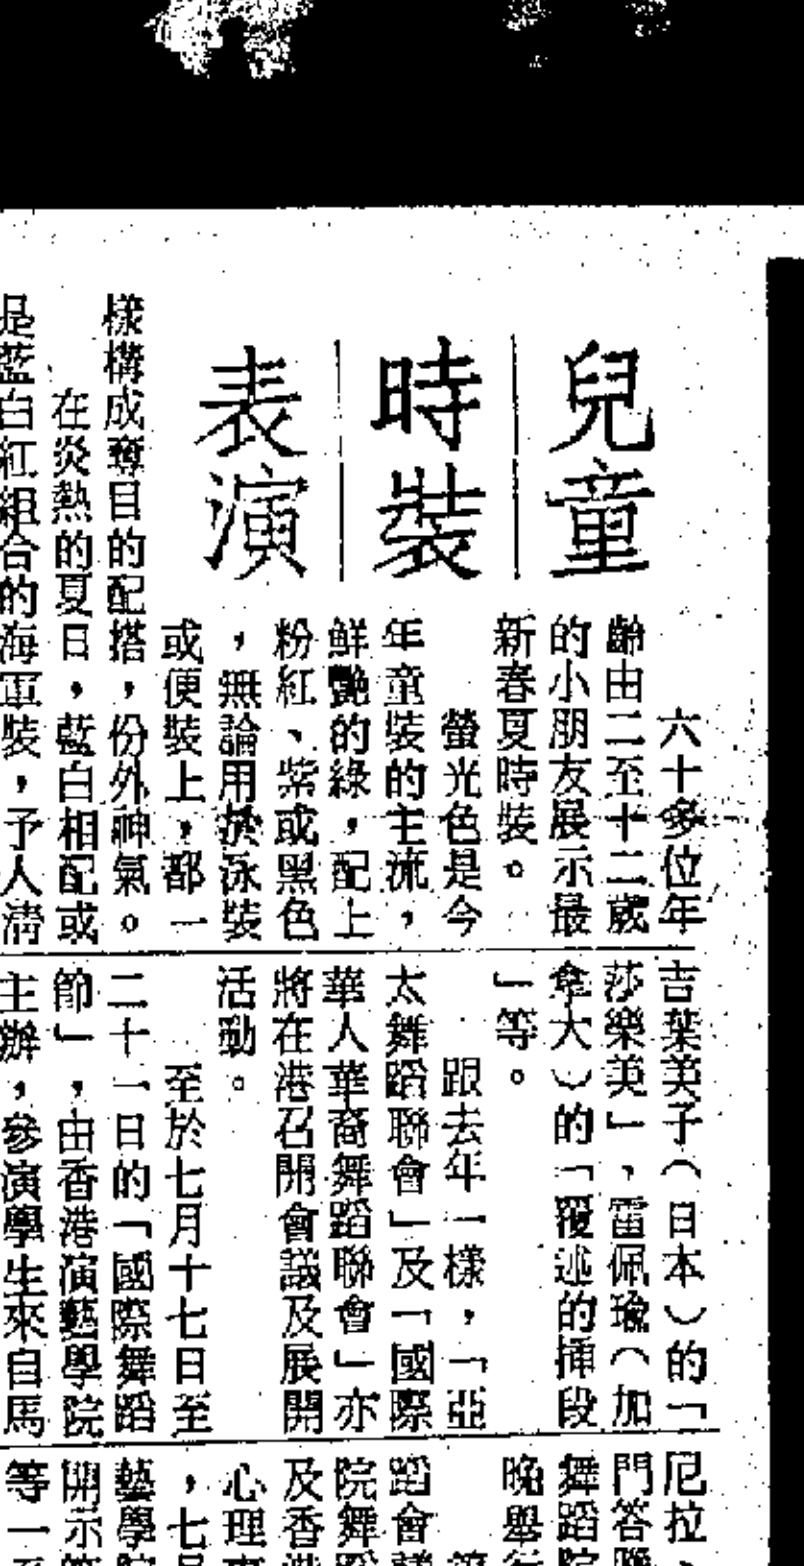 兒童
時裝
表演
六十多位年
齡由二至十二歲
的小朋友展示最
新春夏時裝。
螢光色是今
年童裝的主流，
鮮艷的綠，配上
粉紅、紫或黑色
，無論用於泳裝
或便裝上，都一
樣構成奪目的配搭，份外神氣。
在炎熱的夏日，藍白相配或
是藍白紅組合的海軍裝，予人清
吉葉美子（日本）的「
莎樂美」，雷佩瑜（加
拿大）的「覆述的揷段
」等。
跟去年一樣，「亞
太舞蹈聯會」及「國際
華人華裔舞蹈聯會」亦
將在港召開會議及展開
活動。
至於七月十七日至
二十一日的「國際舞蹈
節」，由香港演藝學院
主辦，參演學生來自馬
尼拉
門答
舞蹈院
晚舉行
蹈會
院舞
及香港
心理
，七月
藝學院
開示
等一